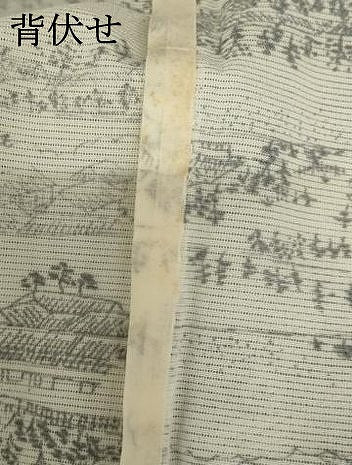 背伏せ